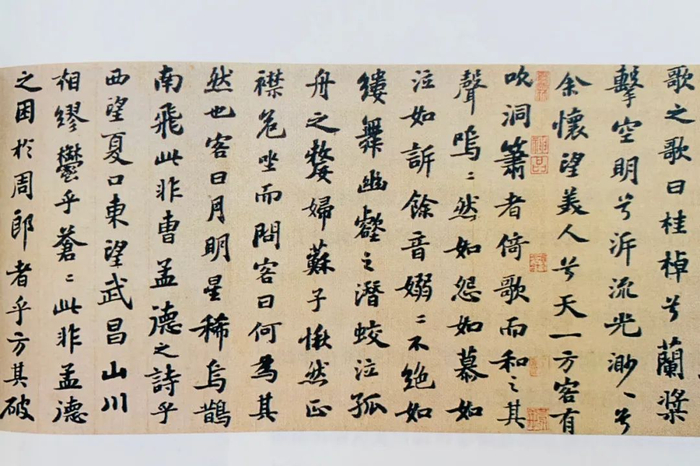 歌之歌曰桂棹兮蘭槳
擊空明兮泝流光渺〻兮
余懷望美人兮天一方客有
吹洞簫者倚歌而和之其
聲嗚〻然如怨如慕如
泣如訴餘音嫋〻不絕如
縷舞幽壑之潛蛟泣孤
舟之嫠婦蘇子愀然正
襟危坐而問客曰何為其
然也客曰月明星稀烏鵲
南飛此非曹孟德之詩乎
西望夏口東望武昌山川
相繆鬱乎蒼〻此非孟德
之困於周郎者乎方其破